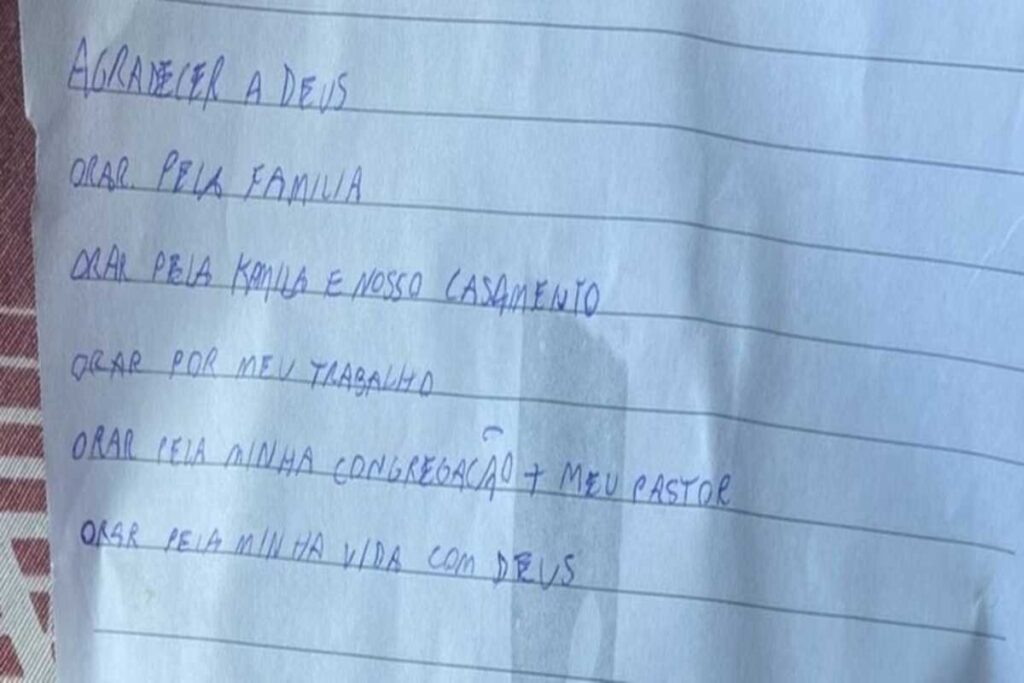 AGRADECER A DEUS
ORAR PELA FAMILIA
ORAR PELA KAMILA E NOSSO CASAMENTO
ORAR POR MEU TRABALHO
ORAR PELA MINHA CONGREGAÇÃO + MEU PASTOR
ORAR PELA MINHA VIDA COM DEUS